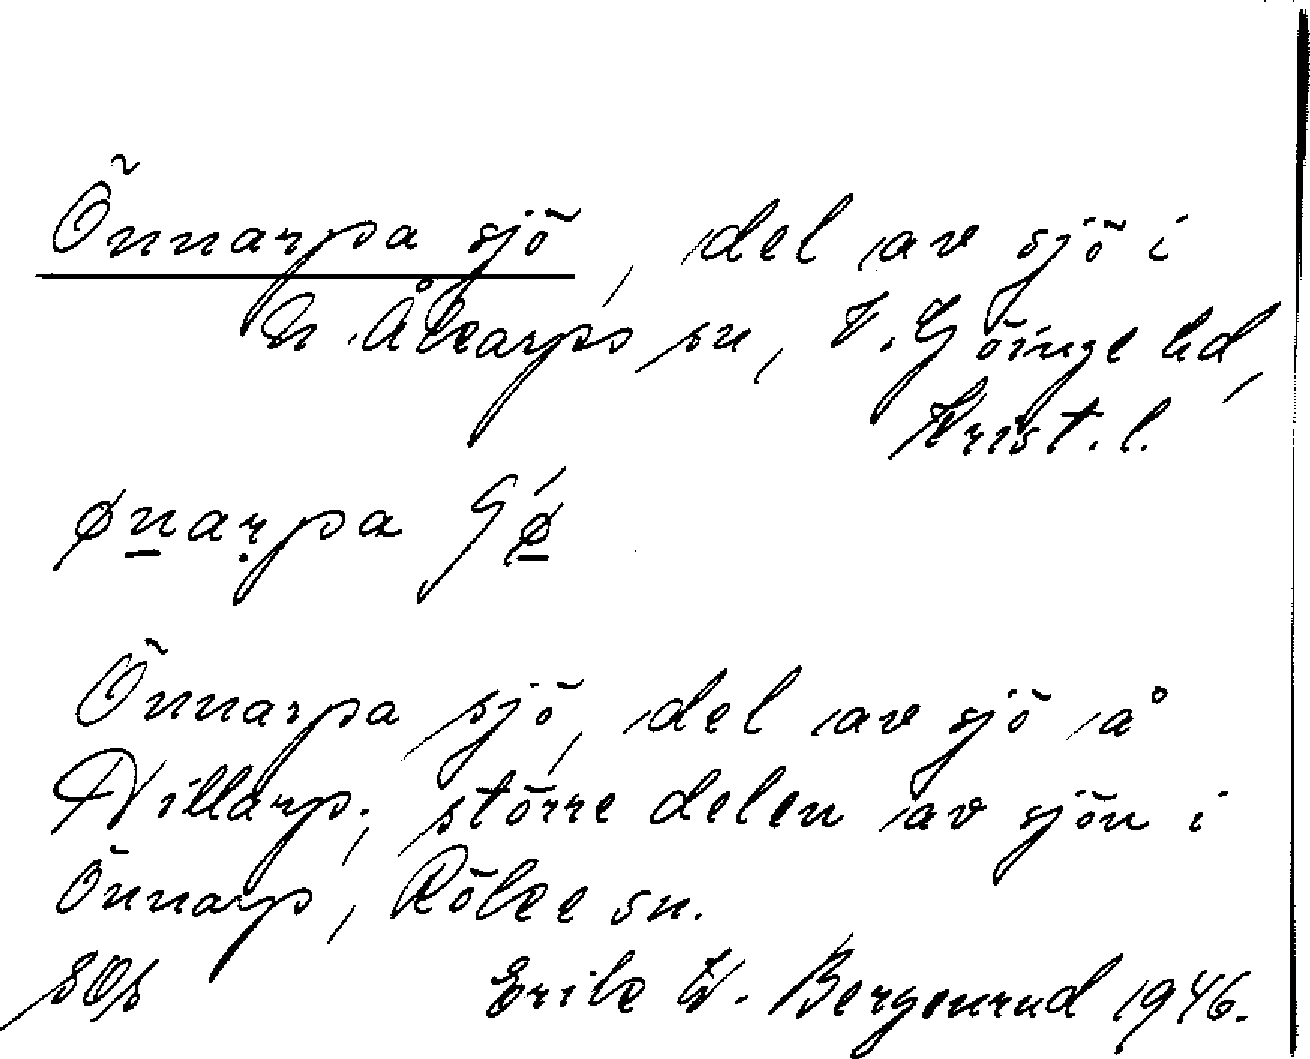 Önnarpa sjö, del av sjö i
N. Åkarps sn, V. Göinge hd,
Krist. l.
ønarpa
Önnarpa sjö, del av sjö å
Nillarp; större delen av sjön i
Önnarp, Röke sn.
SOS Erik W. Bergenrud 1946.